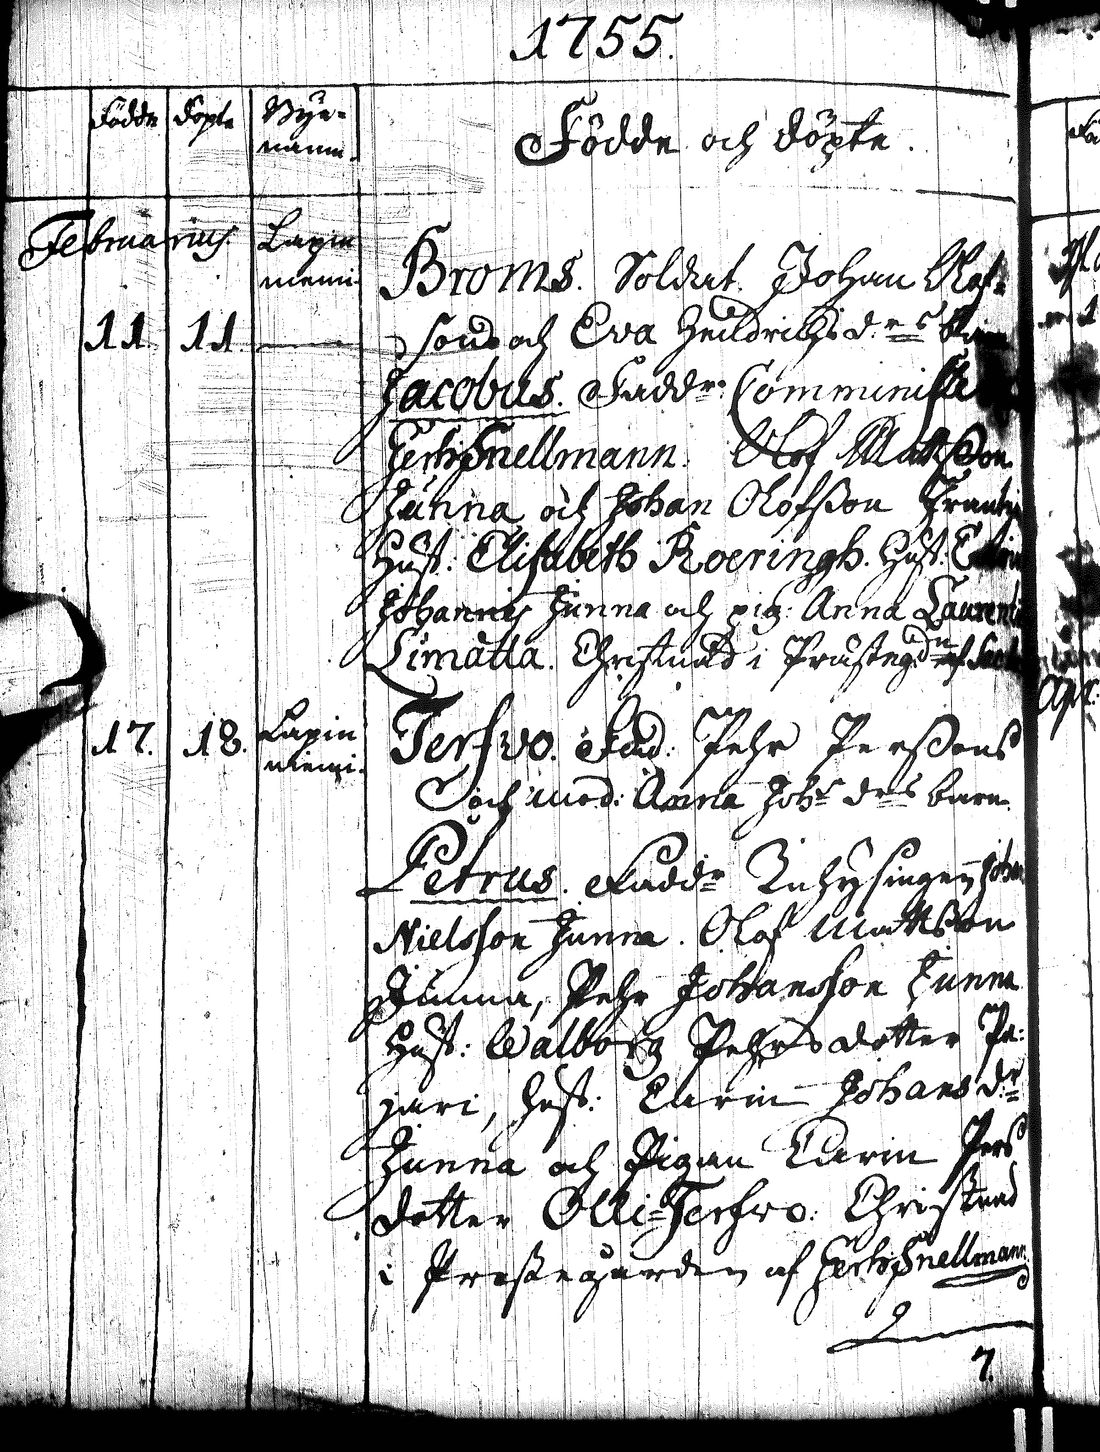 1755.
Födde döpte Bye-
namn.
Födde och döpte.
Februarius. Lapin
niemi.
Broms. Soldat. Johan Olofs-
11. 11. sons och Eva Hendrichs d:rs barn
Jacobus. Faddr: Comminist
Gerh: Snellmann. Olof Mattsson
Junna, och Johan Olofsson Frantzi
Hust: Elisabeth Roeringh. Hust: Catrin
Johannes Junna och pig: Anna Laurent
Limatta. Christnad i Prästeg:dn af
17. 18. Lapin
niemi.
Terfvo. Fad: Pehr Perssons
och mod: Anna Joh:s d:rs barn
Petrus. Faddr Inhysingen Johan
Nielsson Junna. Olof Mattsson
Junna, Pehr Johansson Junna
Hust: Walborg Pehrsdotter Pa:
jari, hust: Carin Johans d:r
Junna och Pigan Carin Pers
dotter Olli-Terfvo. Christnad
i Prästegården af Gerh: Snellmann.
7.